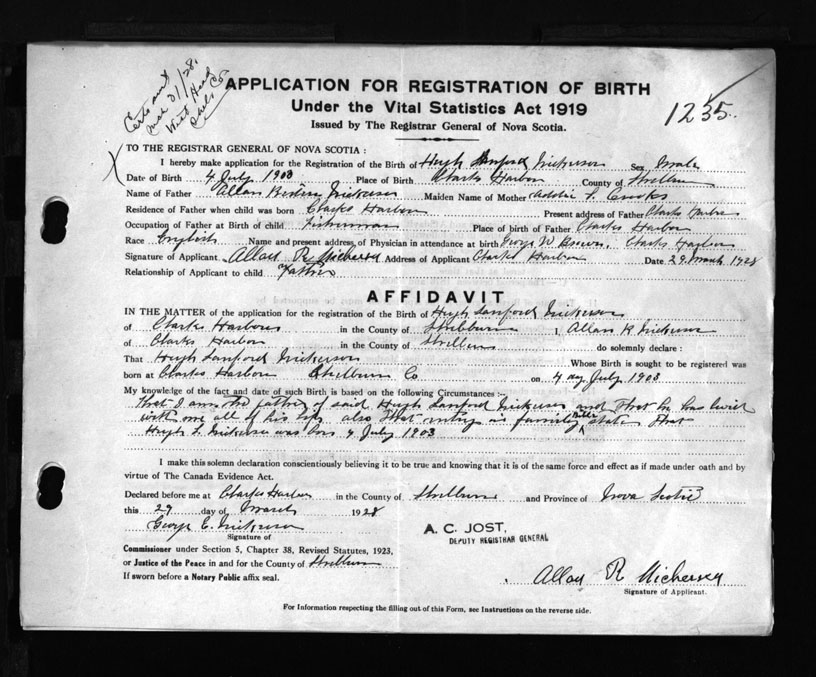 Certs sent
Mar 31/28.
APPLICATION FOR REGISTRATION OF BIRTH
Under the Vital Statistics Act 1919
1235.
Issued by The Registrar General of Nova Scotia.
TO THE REGISTRAR GENERAL OF NOVA SCOTIA :
I hereby make application for the Registration of the Birth of Hugh Sanford Nickerson Sex Male
Date of Birth 4 July 1903 Place of Birth Clarks Harbor County of Shelburne
Name of Father Allan Nickerson Maiden Name of Mother Addie F. Crooks
Residence of Father when child was born Clarks Harbor Present address of Father Clarks Harbor
Occupation of Father at Birth of child Fisherman Place of birth of Father Clarks Harbor
Race English Name and present address of Physician in attendance at birth George W Clarks Harbor
Signature of Applicant Allan R Nickerson Address of Applicant Clarks Harbor Date 29 March 1928
Relationship of Applicant to child Father
AFFIDAVIT
IN THE MATTER of the application for the registration of the Birth of Hugh Sanford Nickerson
of Clarks Harbour in the County of Shelburne I, Allan R Nickerson
of Clarks Harbor in the County of Shelburne do solemnly declare :
That Hugh Sanford Nickerson Whose Birth is sought to be registered was
born at Clarks Harbor Shelburne Co on 4 day July 1903
My knowledge of the fact and date of such Birth is based on the following Circumstances :—
that I am the father of said Hugh Sanford Nickerson and that he has lived
with me all of his life also that entry in family Bible states that
Hugh S. Nickerson was born 4 July 1903
I make this solemn declaration conscientiously believing it to be true and knowing that it is of the same force and effect as if made under oath and by
virtue of The Canada Evidence Act.
Declared before me at Clarks Harbor in the County of Shelburne and Province of Nova Scotia
this 29 day of March 1928
George E. Nickerson
Signature of
A. C. JOST,
DEPUTY REGISTRAR GENERAL
Commissioner under Section 5, Chapter 38, Revised Statutes, 1923,
or Justice of the Peace in and for the County of Shelburne
If sworn before a Notary Public affix seal.
Allan R Nickerson
Signature of Applicant.
For Information respecting the filling out of this Form, see Instructions on the reverse side.